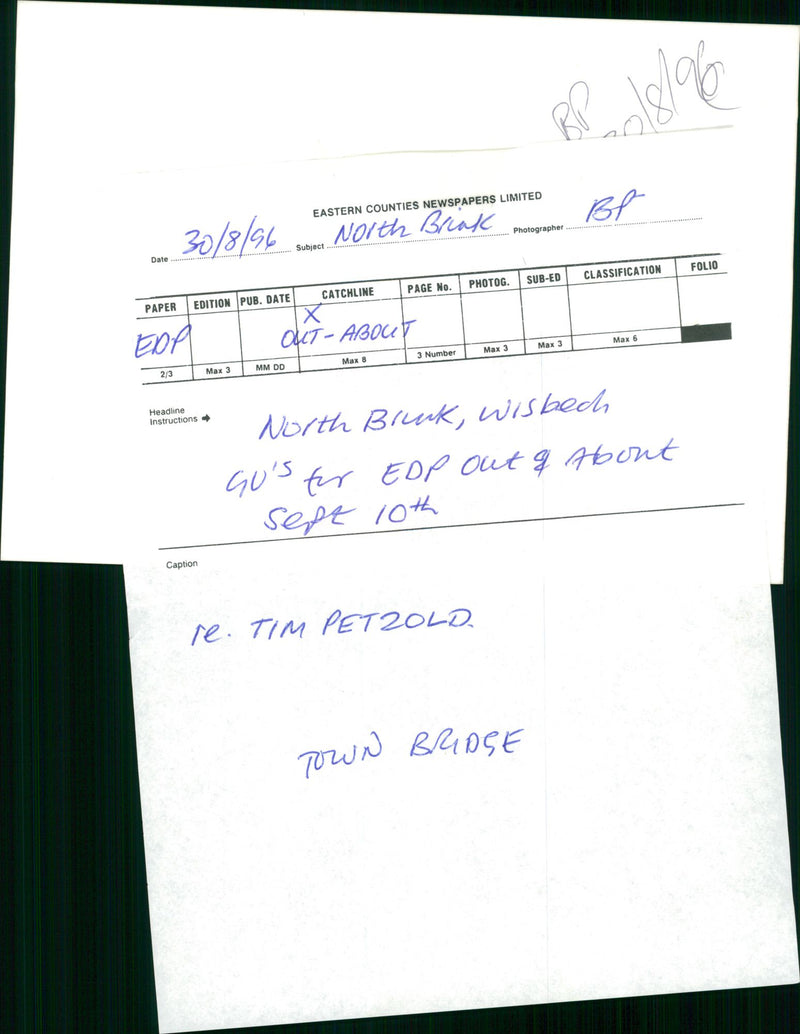 BP
30/8/96
EASTERN COUNTIES NEWSPAPERS LIMITED
Date 30/8/96 Subject North Brink Photographer BP
PAPER EDITION PUB. DATE CATCHLINE PAGE No. PHOTOG. SUB-ED CLASSIFICATION FOLIO
X
EDP OUT-ABOUT
2/3 Max 3 MM DD Max 8 3 Number Max 3 Max 3 Max 6
Headline
Instructions
North Brink, Wisbech
GV'S for EDP Out & About
Sept 10th
Caption
re. TIM PETZOLD.
TOWN BRIDGE